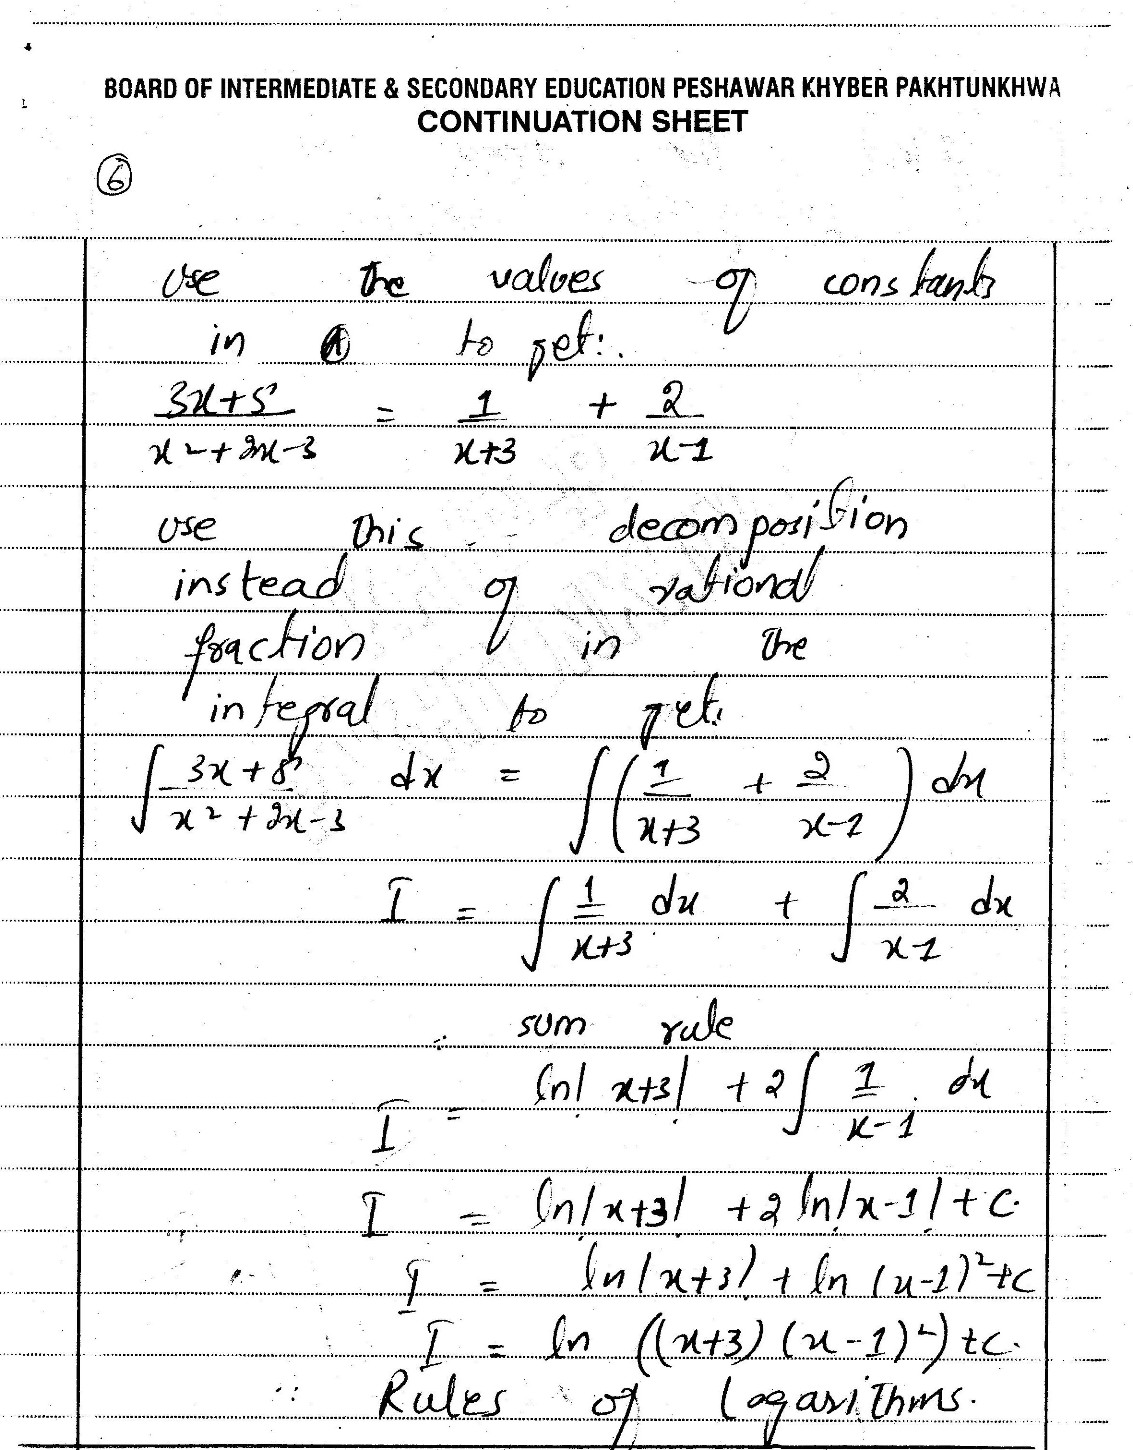 BOARD OF INTERMEDIATE & SECONDARY EDUCATION PESHAWAR KHYBER PAKHTUNKHWA
CONTINUATION SHEET
6
Use the values of constants
in A to get:.
(3x+5)/(x²+2x-3) = 1/(x+3) + 2/(x-1)
use this decomposition
instead of rational
fraction in the
integral to get.
∫ (3x+5)/(x²+2x-3) dx = ∫ (1/(x+3) + 2/(x-1)) dx
I = ∫ 1/(x+3) dx + ∫ 2/(x-1) dx
∴ sum rule
I = ln|x+3| + 2∫ 1/(x-1) dx
I = ln|x+3| + 2 ln|x-1| + C.
I = ln|x+3| + ln (x-1)² + C
I = ln ((x+3)(x-1)²) + C.
∵ Rules of Logarithms.